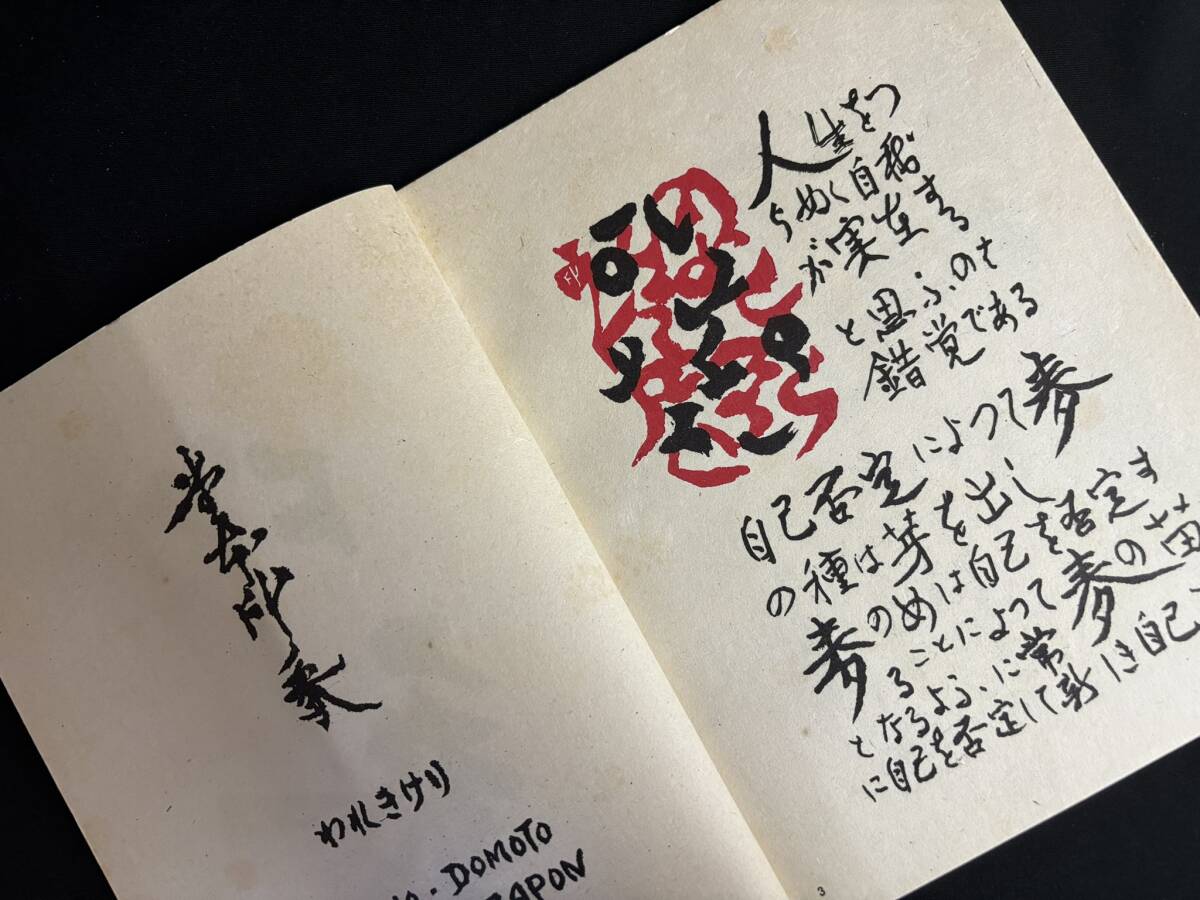 堂本印象
われきけり
DOMOTO
JAPON
人生をつ
らぬく自我
が実在する
と思ふのは
錯覚である
自己否定によつて麦
の種は芽を出し
麦のめは自己を否定す
ることによつて麦の苗
となるように常
に自己を否定して新しき自己
3